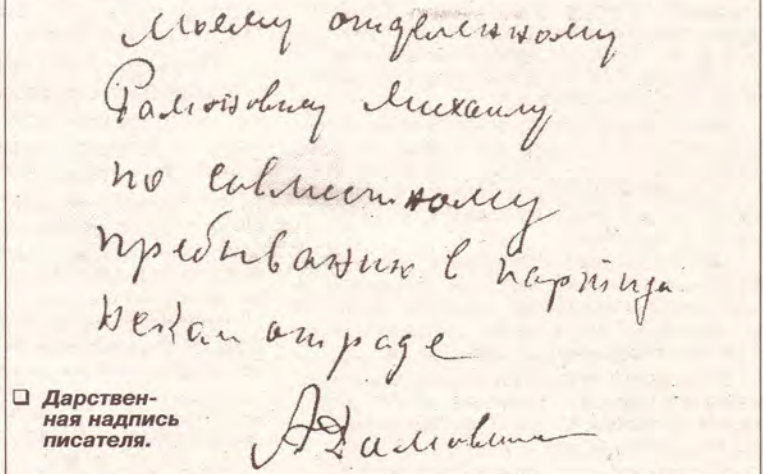 Моему отделенному
Рамановичу Михаилу
по совместному
пребыванию в партиза
нском отряде
❑ Дарствен-
ная надпись
писателя.
Адамович